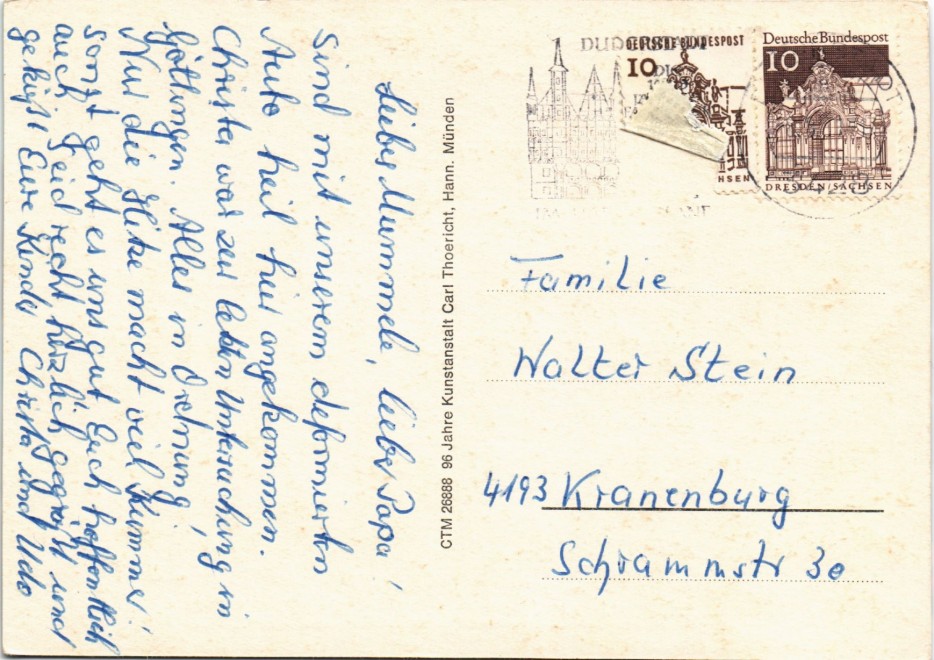 Liebe Mummele, lieber Papa!
Sind mit unserem deformierten
Auto heil hier angekommen.
Christa war zur letzten Untersuchung in
Göttingen. Alles in Ordnung!
Nur die Hitze macht viel Kummer!
Sonst geht es uns gut Euch hoffentlich
auch. Seid recht herzlich gegrüßt und
geküßt Eure Kinder Christa und Udo
CTM 26888 96 Jahre Kunstanstalt Carl Thoericht, Hann. Münden
DUDERSTADT
DEUTSCHE BUNDESPOST
10
HSEN
Deutsche Bundespost
10
DRESDEN/SACHSEN
Familie
Walter Stein
4193 Kranenburg
Schrammstr 30